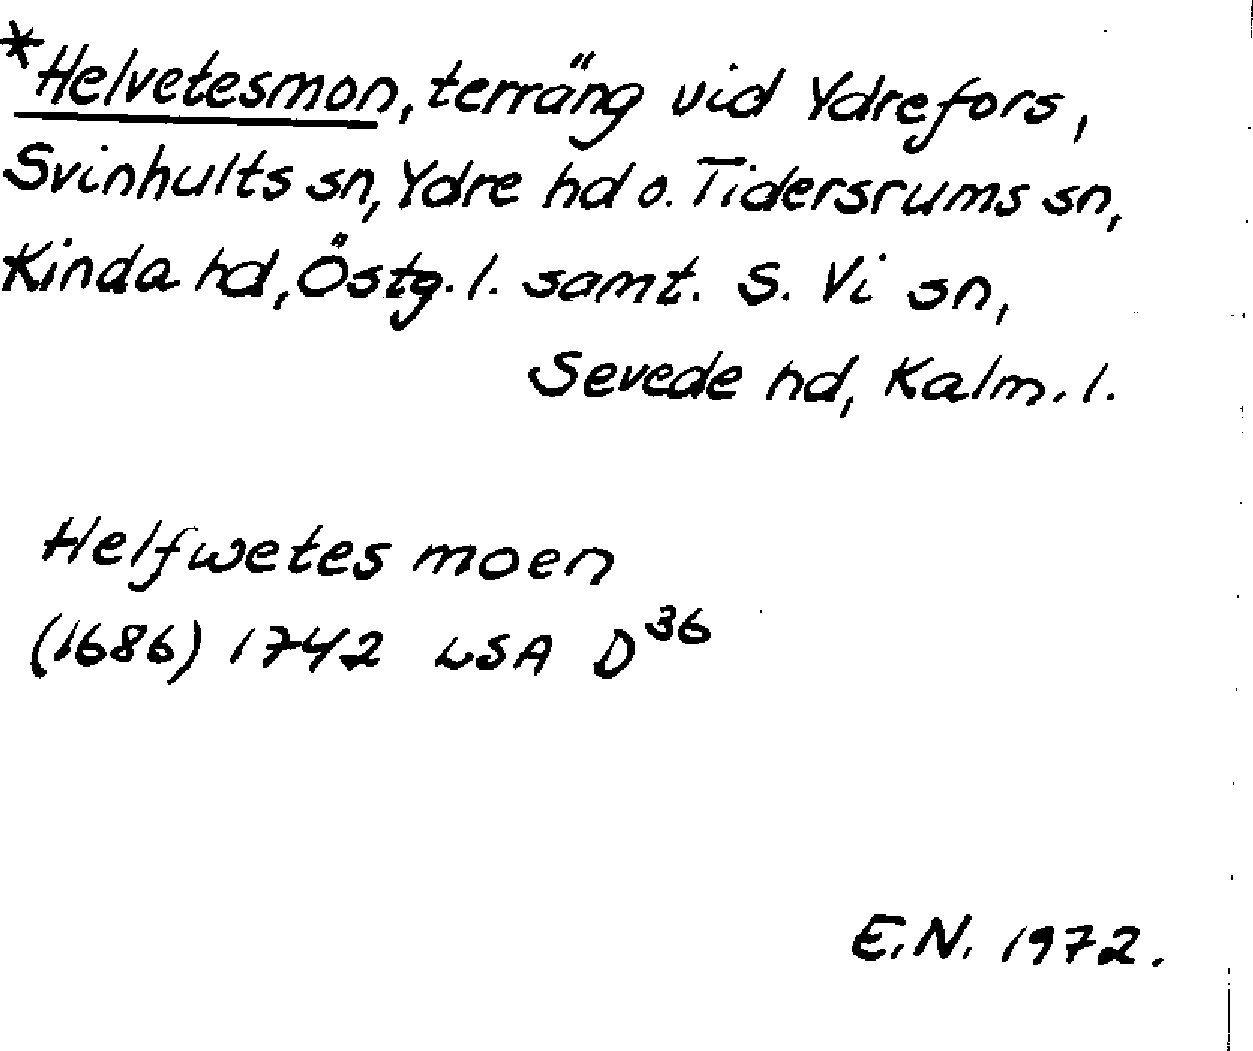 *Helvetesmon, terräng vid Ydrefors,
Svinhults sn, Ydre hd o. Tidersrums sn,
Kinda hd, Östg. l. samt. S. Vi sn,
Sevede hd, Kalm. l.
Helfwetes moen
(1686) 1742 LSA D³⁶
E.N. 1972.